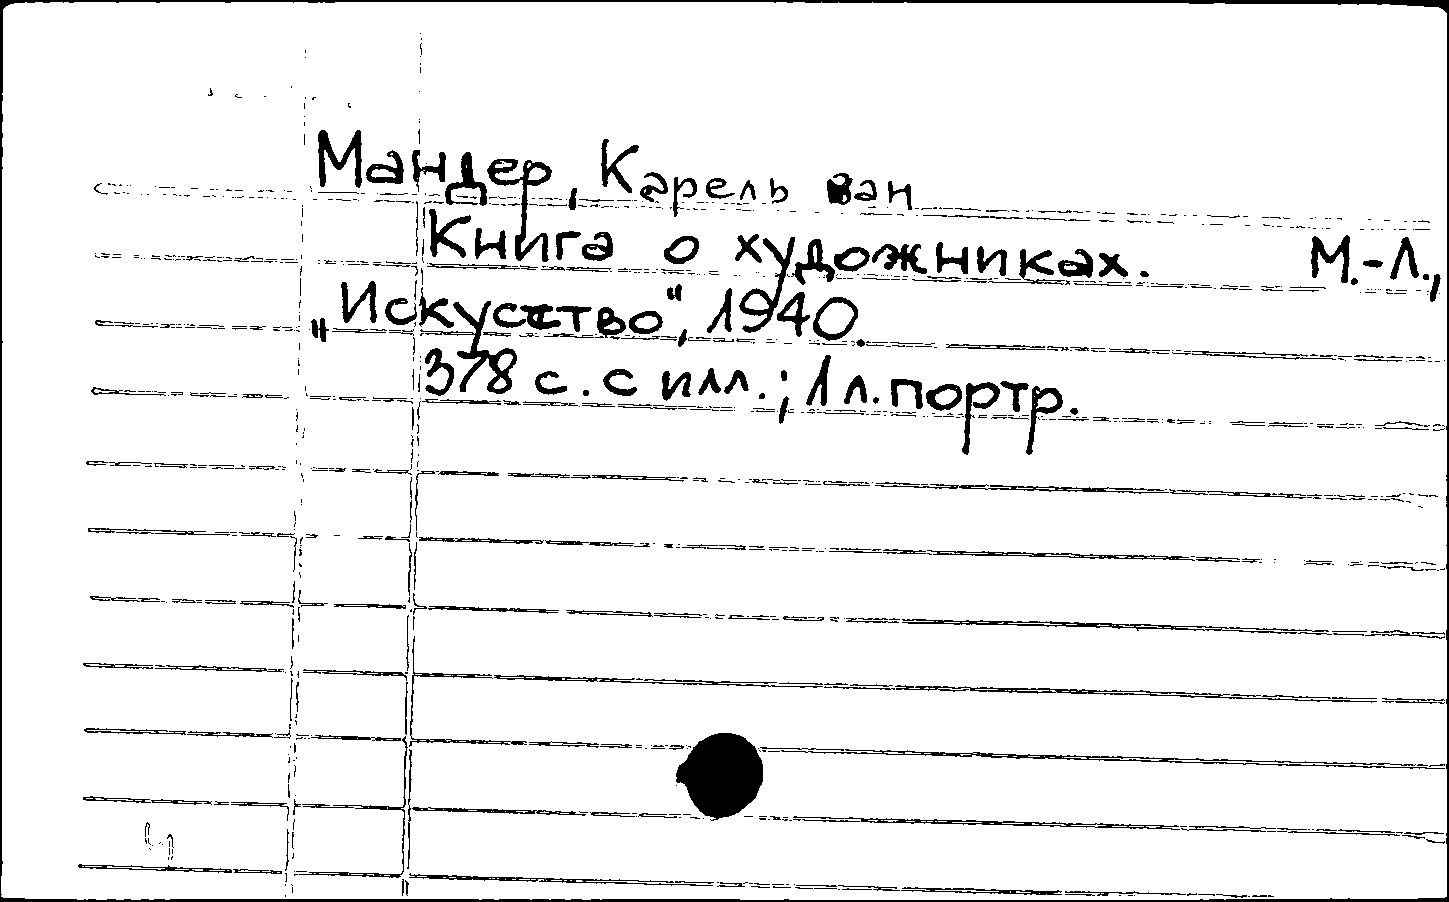 Мандер, Карель ван
Книга о художниках. М.-Л.,
„Искусство", 1940.
378 с. с илл.; 1 л. портр.